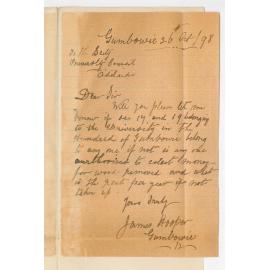 Gumbowie 26 Oct /98
To the
University
Adelaide
Dear Sir
Will you please let me
know if sec 14 and 19 belonging
to the University in the
Hundred of belong
to any one if not is any one
authorised to colect money
for wood removed and what
is the rent per year if not
taken up
Yours truly
James Hooper
Gumbowie